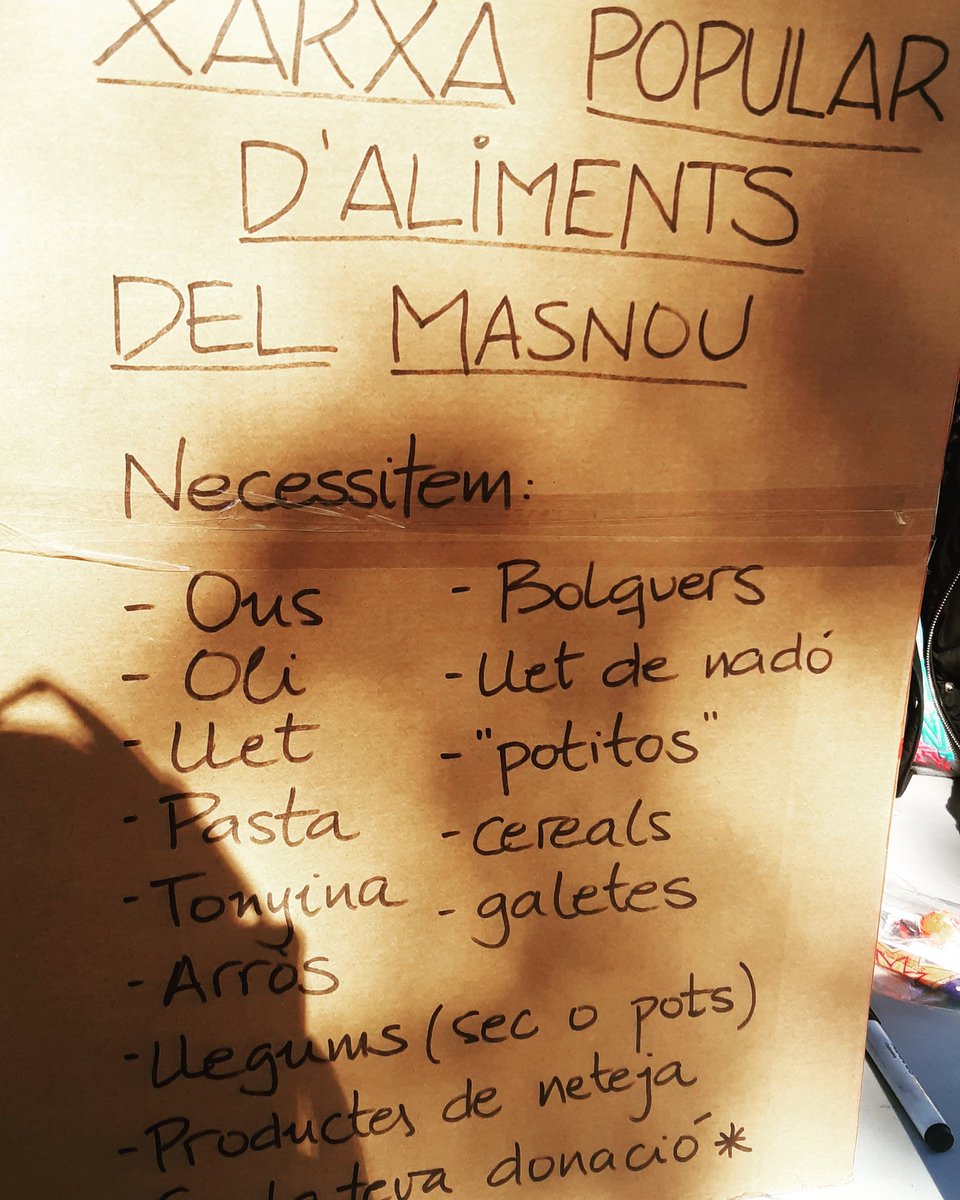 XARXA POPULAR
D'ALIMENTS
DEL MASNOU
Necessitem:
- Ous
- Oli
- Llet
- Pasta
- Tonyina
- Arròs
- Llegums (sec o pots)
- Productes de neteja
- Bolquers
- Llet de nadó
- "potitos"
- cereals
- galetes
la teva donació*